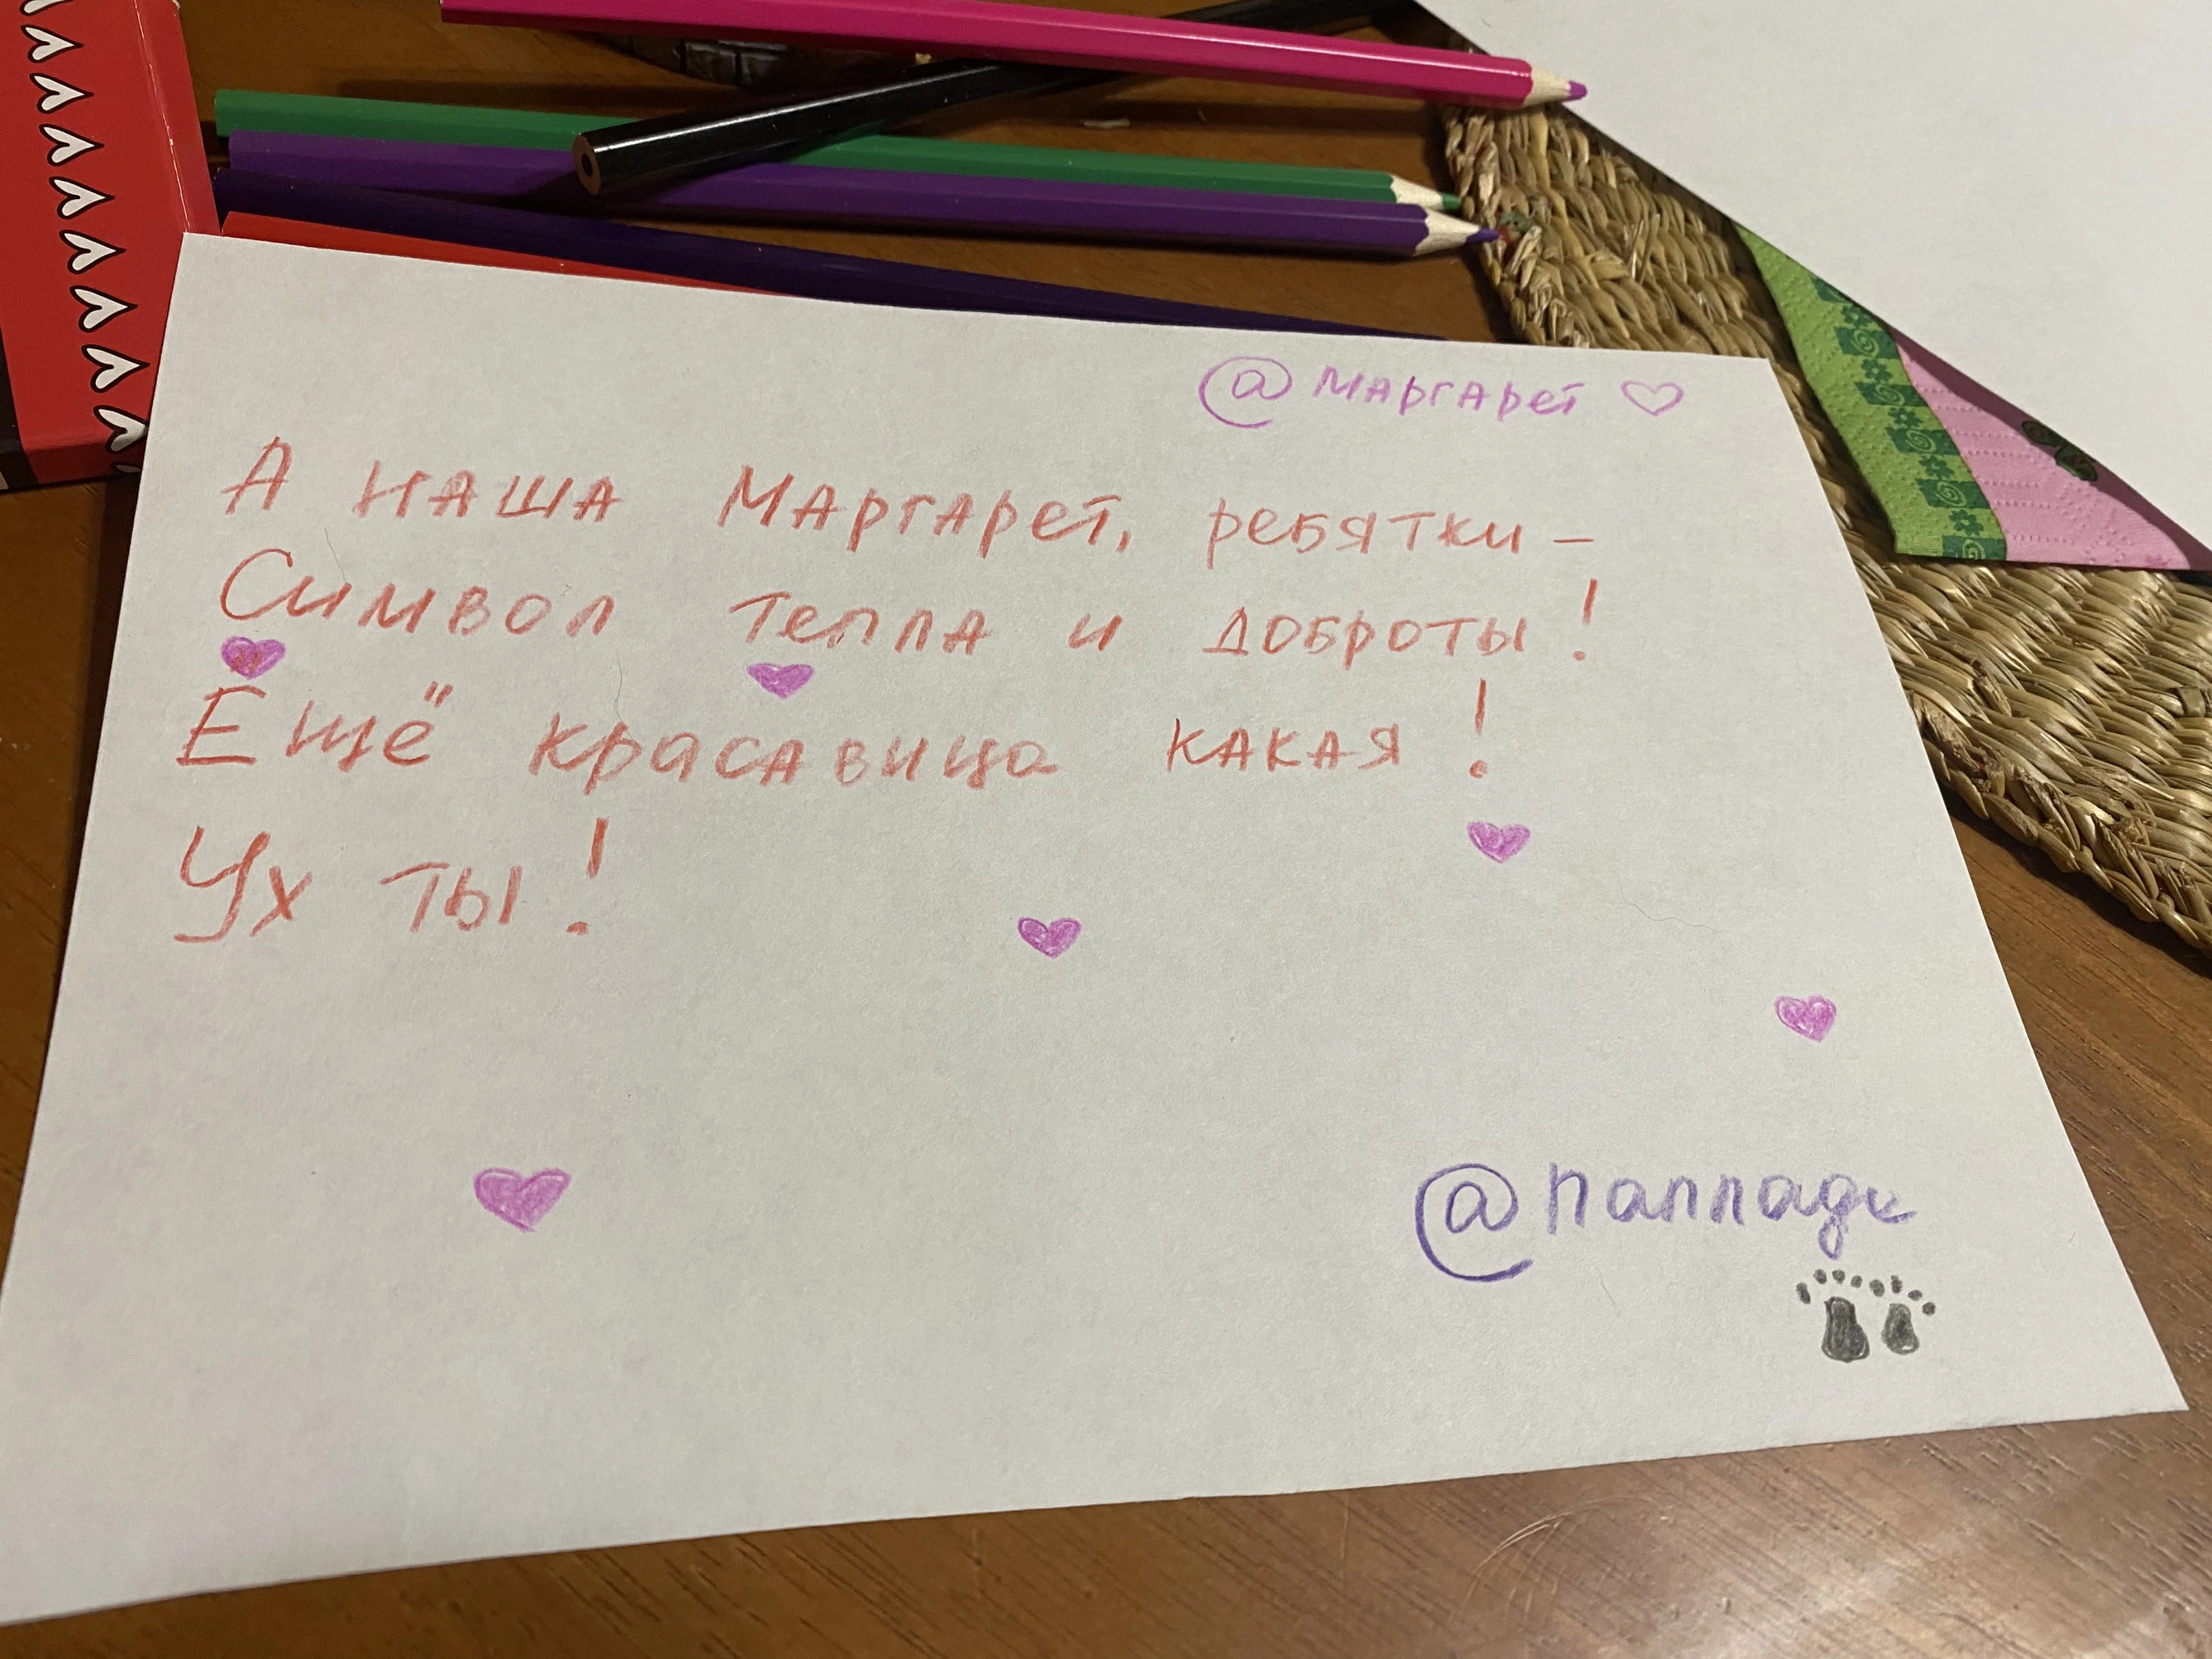 @маргарет
А наша Маргарет, ребятки –
Символ тепла и доброты!
Ещё красавица какая!
Ух ты!
@паллади